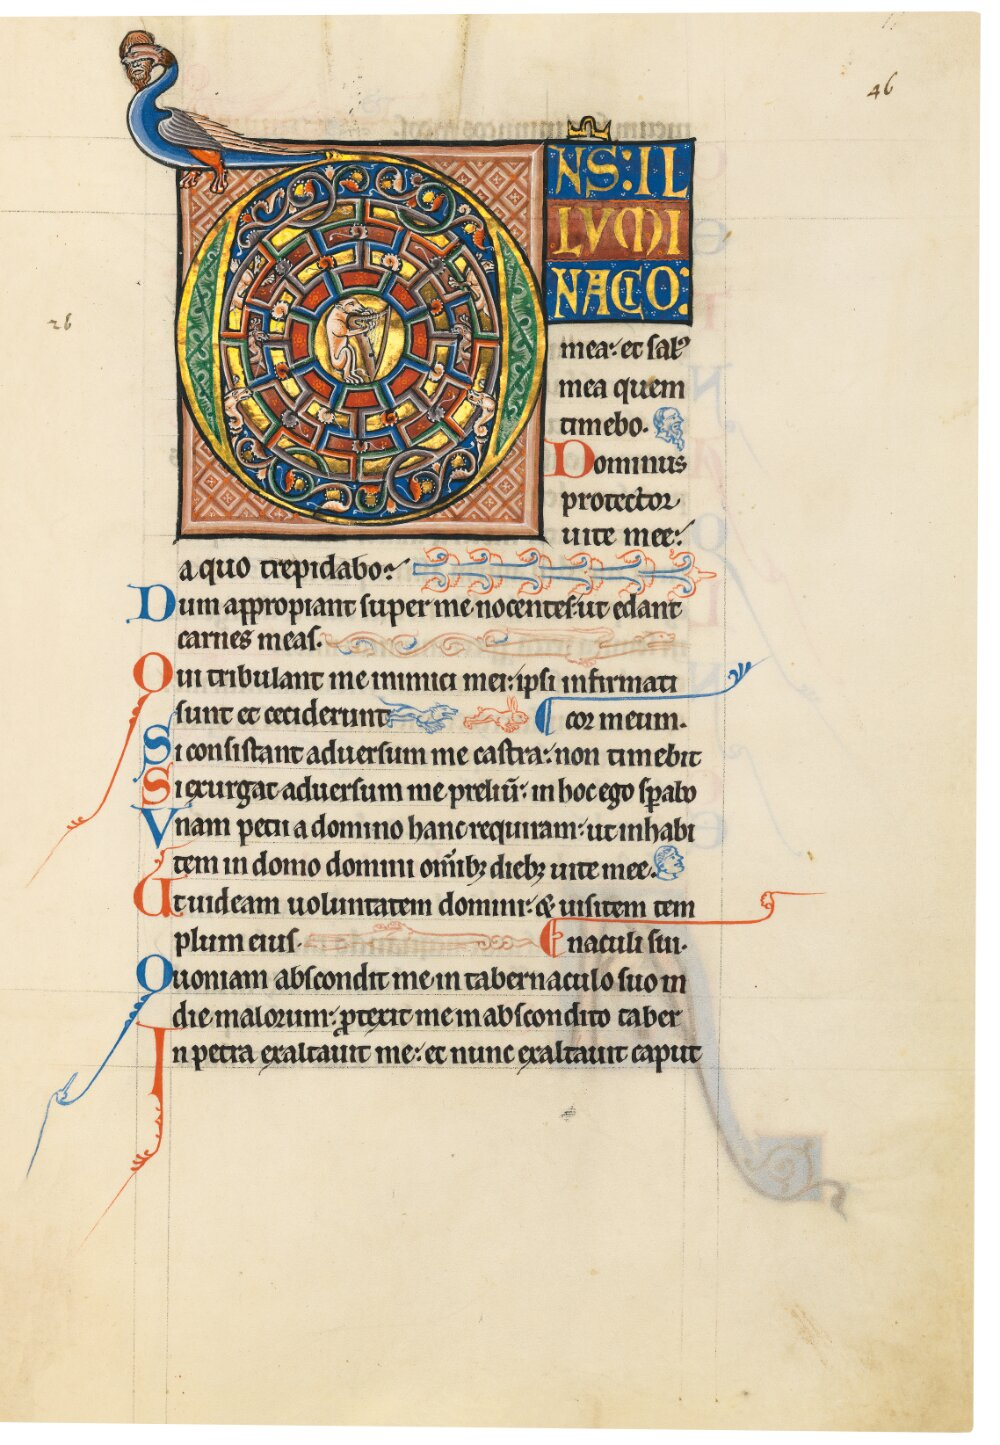 46
DNS: IL
LUMI
NACIO:
26
mea: et sal᷒
mea quem
timebo.
Dominus
protector
uite mee:
a quo trepidabo:
Dum appropiant super me nocentes: ut edant
carnes meas.
Qui tribulant me inimici mei: ipsi infirmati
sunt et ceciderunt. cor meum.
Si consistant aduersum me castra: non timebit
Si exurgat aduersum me preliū: in hoc ego sꝑabo
Vnam petii a domino hanc requiram: ut inhabi
tem in domo domini om̄ibꝫ diebꝫ uite mee.
Ut uideam uoluntatem domini: & uisitem tem
plum eius. Enaculi sui.
Quoniam abscondit me in tabernaculo suo in
die malorum: ꝓtexit me in abscondito taber
In petra exaltauit me: et nunc exaltauit caput